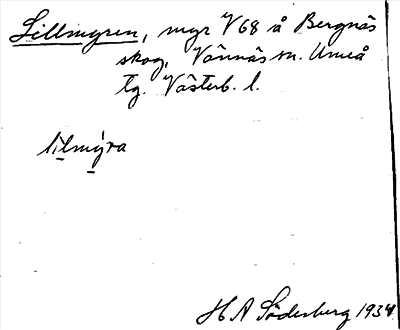 Lillmyren, myr V68 å Bergnäs
skog, Vännäs sn. Umeå
tg. Västerb. l.
lilmýra
H A Söderberg 1934